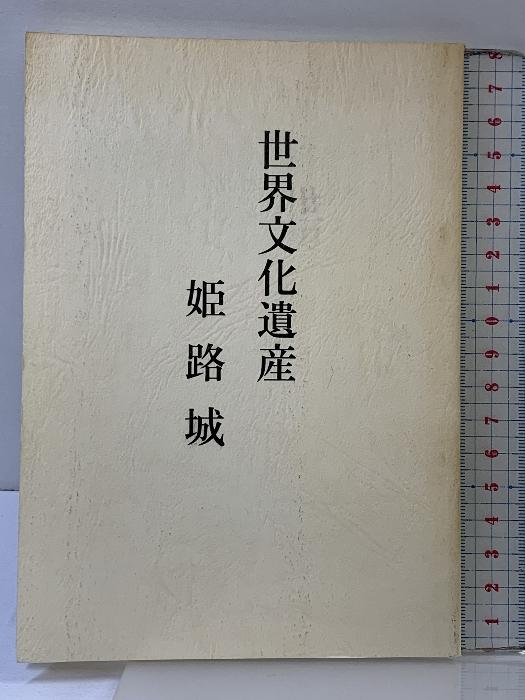 世界文化遺産
姫路城
1 2 3 4 5 6 7 8 9 0 1 2 3 4 5 6 7 8